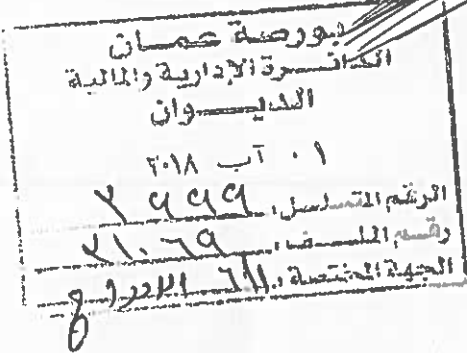 بورصة عمان
الدائرة الإدارية والمالية
الديوان
٠١ آب ٢٠١٨
الرقم المتسلسل: ٢٩٩٩
رقم الملف: ٢١٠٦٩
الجهة المختصة: